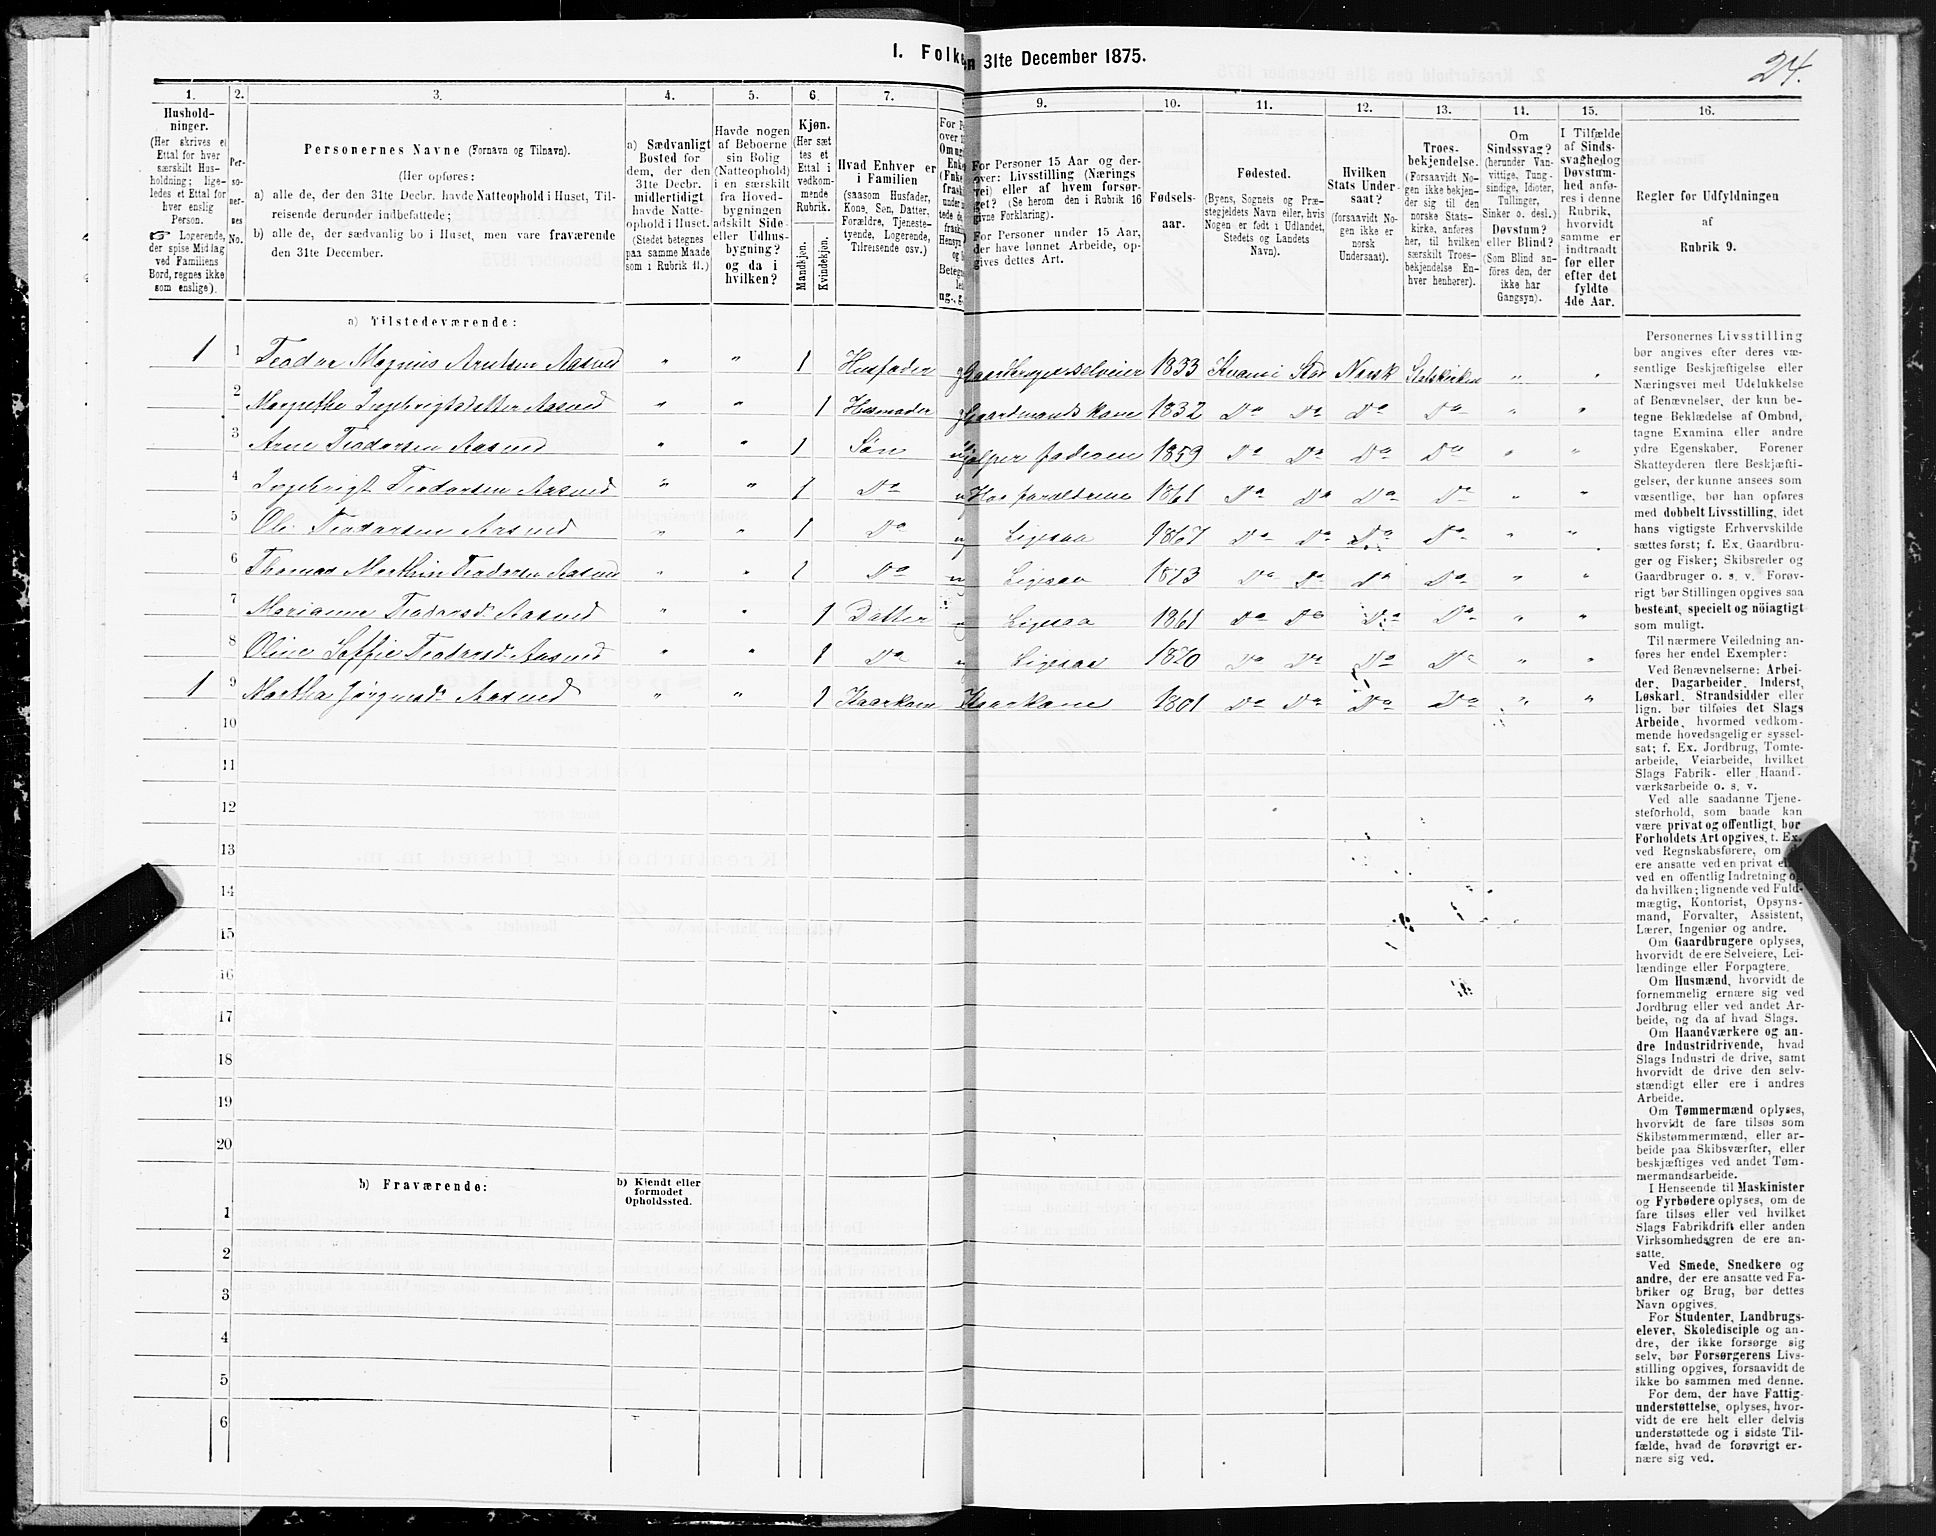 I. Folke
n 31te December 1875.
24.
1. 2. 3. 4. 5. 6. 7. 9. 10. 11. 12. 13. 14. 15. 16.
Hushold-
ninger.
(Her skrives et
Ettal for hver
særskilt Hus-
holdning; lige-
ledes et Ettal for
hver enslig
Person.
☞ Logerende,
der spise Middag
ved Familiens
Bord, regnes ikke
som enslige).
Per-
so-
ner-
nes
No.
Personernes Navne (Fornavn og Tilnavn).
(Her opføres:
a) alle de, der den 31te Decbr. havde Natteophold i Huset, Til-
reisende derunder indbefattede;
b) alle de, der sædvanlig bo i Huset, men vare fraværende
den 31te December.
a) Sædvanligt
Bosted for
dem, der den
31te Decbr.
midlertidigt
havde Natte-
ophold i Huset.
(Stedet betegnes
paa samme Maade
som i Rubrik 11.)
Havde nogen
af Beboerne
sin Bolig
(Natteophold)
i en særskilt
fra Hoved-
bygningen
adskilt Side-
eller Udhus-
bygning?
og da i
hvilken?
Kjøn.
(Her sæt-
tes et
Ettal i
vedkom-
mende
Rubrik.
Mandkjøn.
Kvindekjøn.
Hvad Enhver er
i Familien
(saasom Husfader,
Kone, Søn, Datter,
Forældre, Tjeneste-
tyende, Logerende,
Tilreisende osv.)
For Personer 15 Aar og der-
over: Livsstilling (Nærings-
vei) eller af hvem forsør-
get? (Se herom den i Rubrik 16
givne Forklaring).
For Personer under 15 Aar,
der have lønnet Arbeide, op-
gives dettes Art.
Fødsels-
aar.
Fødested.
(Byens, Sognets og Præ-
stegjeldets Navn eller, hvis
Nogen er født i Udlandet,
Stedets og Landets
Navn).
Hvilken
Stats Under-
saat?
(forsaavidt No-
gen ikke er
norsk
Undersaat).
Troes-
bekjendelse.
(Forsaavidt No-
gen ikke bekjen-
der sig til den
norske Stats-
kirke, anføres
her, til hvilken
særskilt Troes-
bekjendelse En-
hver henhører).
Om
Sindssvag?
(herunder Van-
vittige, Tung-
sindige, Idioter,
Tullinger,
Sinker o. desl.)
Døvstum?
eller Blind?
(Som Blind an-
føres den, der
ikke har
Gangsyn).
I Tilfælde
af Sinds-
svaghed og
Døvstum-
hed anfø-
res i denne
Rubrik,
hvorvidt
samme er
indtraadt
før eller
efter det
fyldte
4de Aar.
Regler for Udfyldningen
af
Rubrik 9.
a) Tilstedeværende:
1 1 Teodor Magnus Arntsen Aasved " " 1 Husfader g Gaardbruger selveier 1833 Kvami Stod Norsk Statskirken " "
2 Margrethe Ingebrigtsdatter Aasved " " 1 Husmoder g Gaardmands kone 1832 Do Do Do Do " "
3 Arne Teodorsen Aasved " " 1 Søn hjelper faderen 1859 Do Do Do Do " "
4 Ingebrigt Teodorsen Aasved " " 1 Do Hos forældrene 1861 Do Do Do Do " "
5 Ole Teodorsen Aasved " " 1 Do Ligesaa 1867 Do Do Do Do " "
6 Thomas Marthin Teodorsen Aasved " " 1 Do Ligesaa 1873 Do Do Do Do " "
7 Marianne Teodorsd. Aasved " " 1 Datter Ligesaa 1861 Do Do Do Do " "
8 Oline Soffie Teodorsd. Aasved " " 1 Do Ligesaa 1870 Do Do Do Do " "
1 9 Martha Jørgensd. Aasved " " 1 Kaarkone Kaarkone 1801 Do Do Do Do " "
10
11
12
13
14
15
16
17
18
19
20
b) Fraværende:
b) Kjendt eller
formodet
Opholdssted.
1
2
3
4
5
6
Personernes Livsstilling
bør angives efter deres væ-
sentlige Beskjæftigelse eller
Næringsvei med Udelukkelse
af Benævnelser, der kun be-
tegne Beklædelse af Ombud,
tagne Examina eller andre
ydre Egenskaber. Forener
Skatteyderen flere Beskjæfti-
gelser, der kunne ansees som
væsentlige, bør han opføres
med dobbelt Livsstilling, idet
hans vigtigste Erhvervskilde
sættes først; f. Ex. Gaardbru-
ger og Fisker; Skibsreder og
Gaardbruger o. s. v. Forøv-
rigt bør Stillingen opgives saa
bestemt, specielt og nöiagtigt
som muligt.
Til nærmere Veiledning an-
føres her endel Exempler:
Ved Benævnelserne: Arbei-
der, Dagarbeider, Inderst,
Løskarl, Strandsidder eller
lign. bør tilføies det Slags
Arbeide, hvormed vedkom-
mende hovedsagelig er syssel-
sat; f. Ex. Jordbrug, Tomte-
arbeide, Veiarbeide, hvilket
Slags Fabrik- eller Haand-
værksarbeide o. s. v.
Ved alle saadanne Tjene-
steforhold, som baade kan
være privat og offentligt, bør
Forholdets Art opgives, t. Ex.
ved Regnskabsførere, om de
ere ansatte ved en privat eller
ved en offentlig Indretning og
da hvilken; lignende ved Fuld-
mægtig, Kontorist, Opsyns-
mand, Forvalter, Assistent,
Lærer, Ingeniør og andre.
Om Gaardbrugere oplyses,
hvorvidt de ere Selveiere, Lei-
lændinge eller Forpagtere.
Om Husmænd, hvorvidt de
fornemmelig ernære sig ved
Jordbrug eller ved andet Ar-
beide, og da af hvad Slags.
Om Haandværkere og an-
dre Industridrivende, hvad
Slags Industri de drive, samt
hvorvidt de drive den selv-
stændigt eller ere i andres
Arbeide.
Om Tømmermænd oplyses,
hvorvidt de fare tilsøs som
Skibstømmermænd, eller ar-
beide paa Skibsværfter, eller
beskjæftiges ved andet Tøm-
mermandsarbeide.
I Henseende til Maskinister
og Fyrbødere oplyses, om de
fare tilsøs eller ved hvilket
Slags Fabrikdrift eller anden
Virksomhedsgren de ere an-
satte.
Ved Smede, Snedkere og
andre, der ere ansatte ved Fa-
briker og Brug, bør dettes
Navn opgives.
For Studenter, Landbrugs-
elever, Skoledisciple og an-
dre, der ikke forsørge sig
selv, bør Forsørgerens Livs-
stilling opgives, forsaavidt de
ikke bo sammen med denne.
For dem, der have Fattig-
understøttelse, oplyses, hvor-
vidt de ere helt eller delvis
understøttede og i sidste Til-
fælde, hvad de forøvrigt er-
nære sig ved.